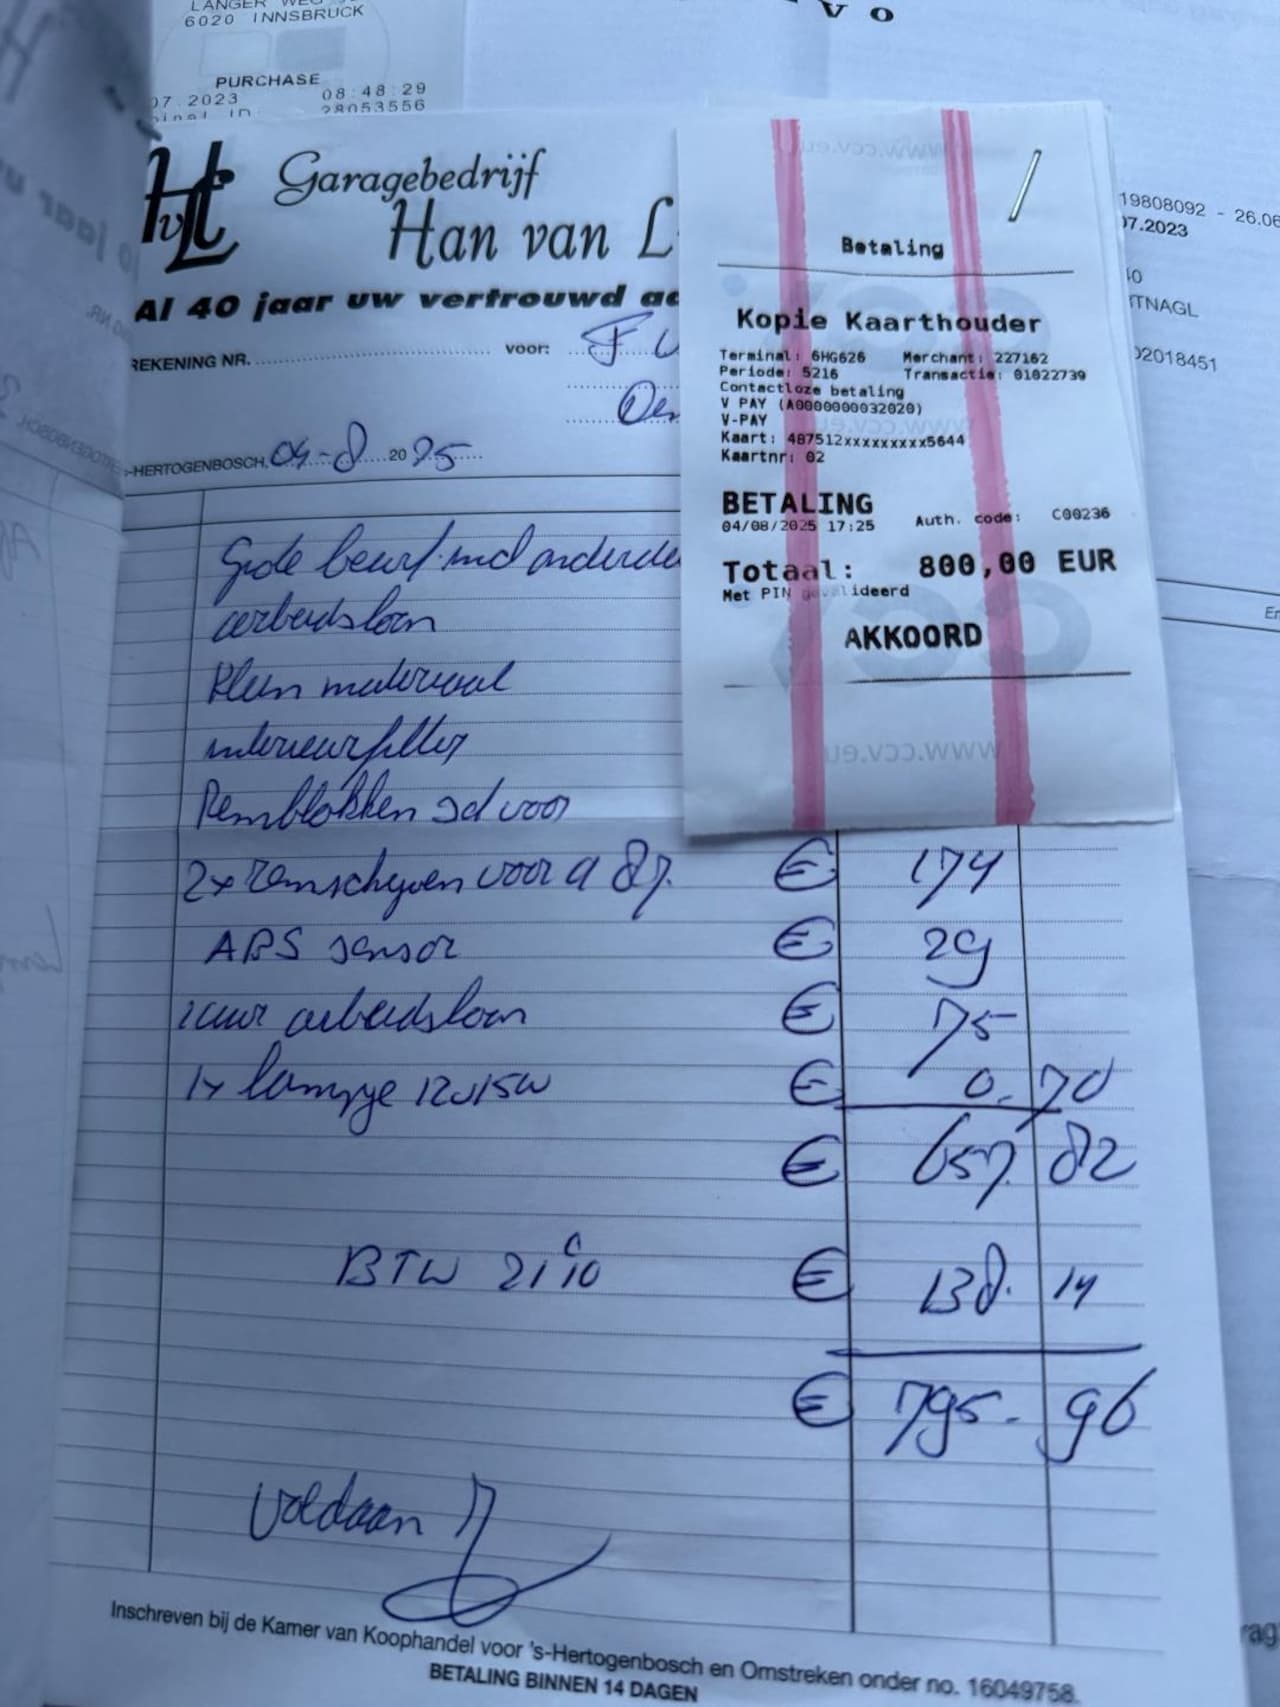 LANGER WEG
6020 INNSBRUCK
PURCHASE
07.2023 08:48:29
28053556
Garagebedrijf
Han van L
Al 40 jaar uw vertrouwd
REKENING NR. voor: F
-HERTOGENBOSCH, 04-8 2025
Grote beurt met onderde
arbeidsloon
Klein materiaal
interieurfilter
Remblokken set voor
2x remschijven voor a 87. € 174
ABS sensor € 29
1 uur arbeidsloon € 75
1x lampje 12v15w € 0.70
€ 657.82
BTW 21% € 138.14
€ 795.96
Voldaan
Inschreven bij de Kamer van Koophandel voor 's-Hertogenbosch en Omstreken onder no. 16049758.
BETALING BINNEN 14 DAGEN
Betaling
Kopie Kaarthouder
Terminal: 6HG626 Merchant: 227162
Periode: 5216 Transactie: 01022739
Contactloze betaling
V PAY (A0000000032020)
V-PAY
Kaart: 487512xxxxxxxxx5644
Kaartnr: 02
BETALING
04/08/2025 17:25 Auth. code: C00236
Totaal: 800,00 EUR
Met PIN gevalideerd
AKKOORD
www.ccv.eu
19808092 - 26.06
07.2023
TNAGL
02018451